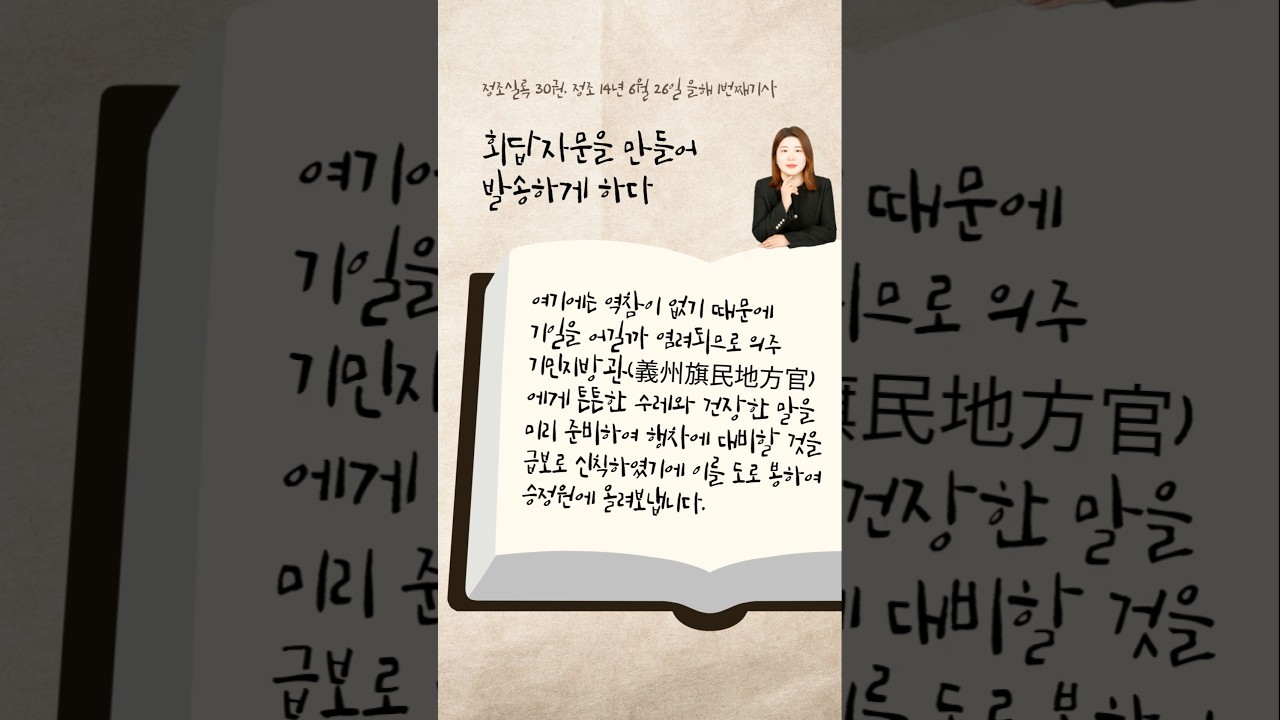 정조실록 30권, 정조 14년 6월 26일 을해 1번째기사
회답 자문을 만들어
발송하게 하다
여기에는 역참이 없기 때문에
기일을 어길까 염려되므로 의주
기민지방관(義州旗民地方官)
에게 튼튼한 수레와 건장한 말을
미리 준비하여 행차에 대비할 것을
급보로 신칙하였기에 이를 도로 봉하여
승정원에 올려보냅니다.